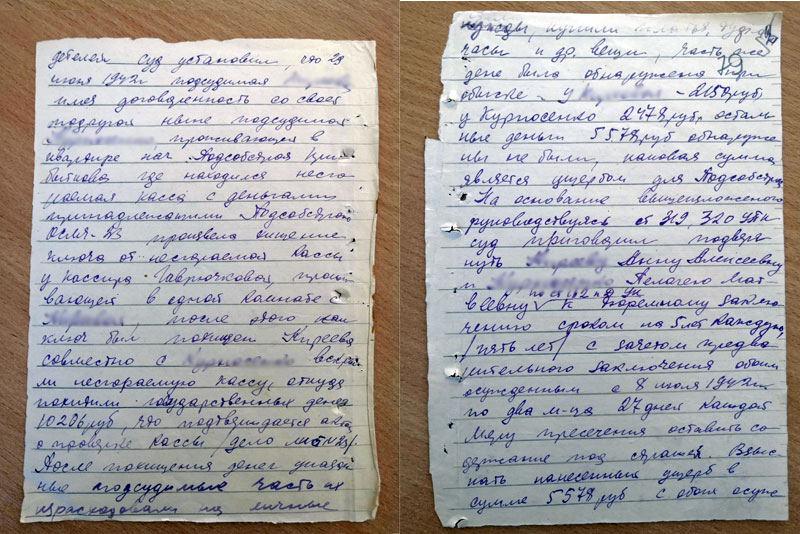 детелей суд установил, что 29
июня 1942г подсудимая
имея договоренность со своей
подругой ныне подсудимая
, проживающей в
квартире нач. Подсобстрой
где находился несго
раемая касса с деньгами
принадлежащими Подсобстрой
произвела хищение
ключа от несгораемой кассы
у кассира Гаврючковой, прожи
вающей в одной комнате с
, после этого как
ключ был похищен Киреева
совместно с вскры
ли несгораемую кассу, откуда
похитили государственных денег
10206 руб, что подтверждается актом
о проверке кассы /дело
После похищения денег указан
ные подсудимые часть их
израсходовали на личные
нужды, купили
часы и др. вещи, часть же
79
денег была обнаружена при
обыске у - 2150 руб,
у Курносенко 2478 руб, осталь
ные деньги 5578 руб обнаруже
ны не были, каковая сумма
является ущербом для Подсобстроя
На основание вышеизложенного
руководствуясь ст 319, 320 УПК
суд приговорил подверг
нуть Анну Алексеевну
и Пелагею Мат
веевну по ст 162 п УК к тюремному заклю
чению сроком на 5 лет каждую,
/пять лет/ с зачетом предва
рительного заключения обоим
осужденным с 8 июля 1942г
по два м-ца 27 дней каждой
Меру пресечения оставить со
держание под стражей. Взыс
кать нанесенный ущерб в
сумме 5578 руб с обоих осуж